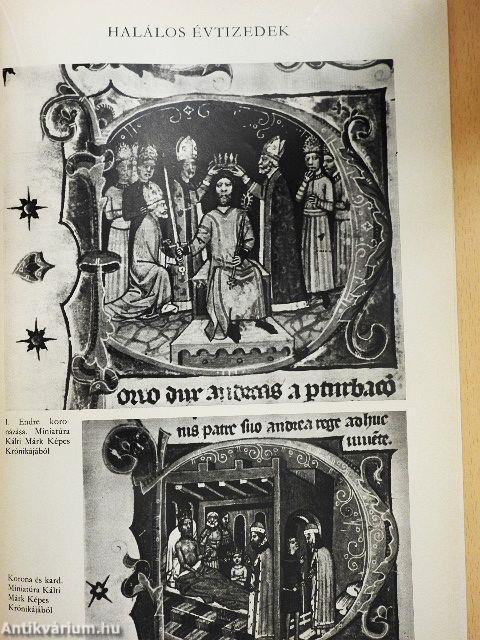 HALÁLOS ÉVTIZEDEK
orro dux andreas a pturbacō
I. Endre koro-
názása. Miniatúra
Kálti Márk Képes
Krónikájából
nis patre suo andrea rege adhuc
uiuēte.
Korona és kard.
Miniatúra Kálti
Márk Képes
Krónikájából
Antikvárium.hu